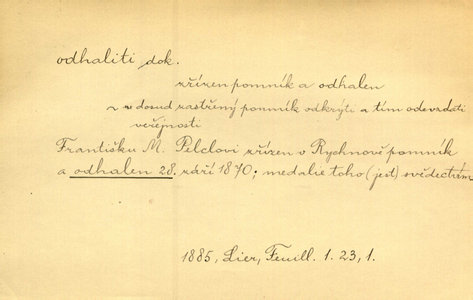 odhaliti dok.
zřízen pomník a odhalen
~ v dosud zastřený pomník odkrýti a tím odevzdati
veřejnosti
Františku M. Pelclovi zřízen v Rychnově pomník
a odhalen 28. září 1870; medalie toho (jest) svědectvím
1885, Lier, Feuill. 1. 23, 1.